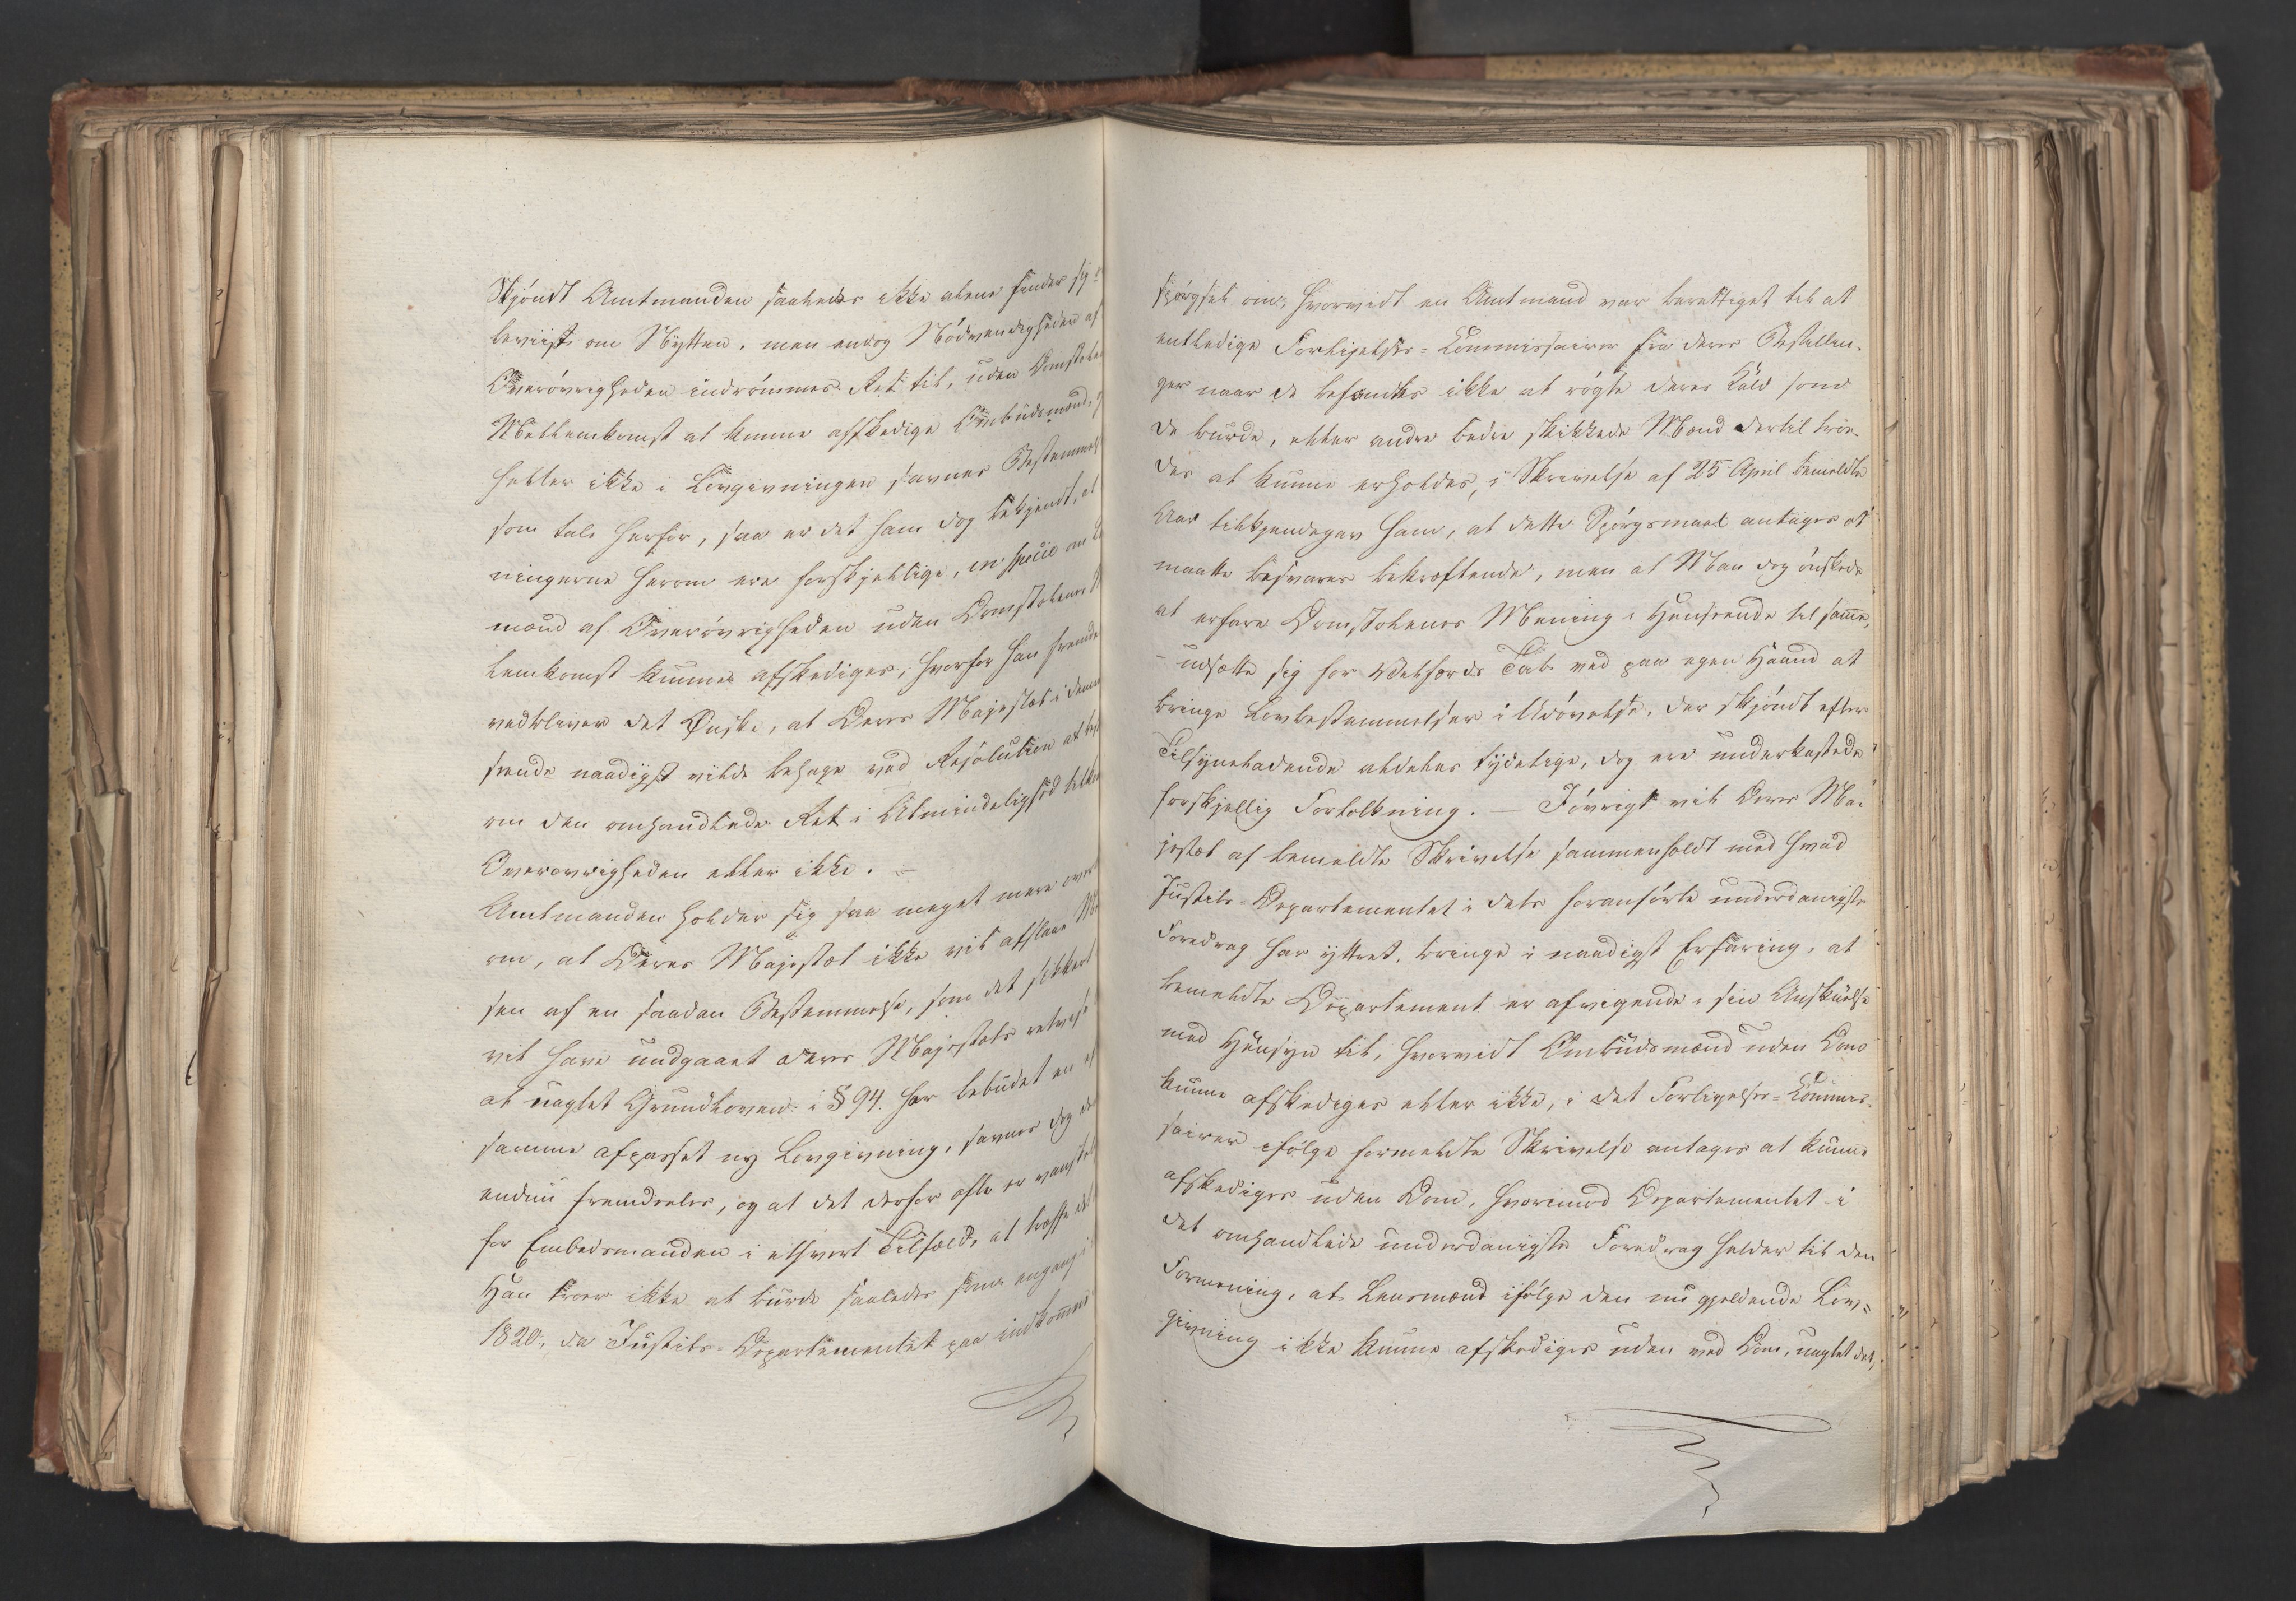 Skjöndt Amtmanden saaledes ikke alene finder sig
beviist om Nytten, men endog Nödvendigheden af
Overövrigheden indrömmes Ret til, uden Domstolen
Mellemkomst at kunne afskedige Ombudsmænd,
heller ikke i Lovgivningen savner Bestemmel
som tale herfor, saa er det ham dog bekjendt, at
ningerne herom ere forskjellige, in specie om
mænd af Overövrigheden uden Domstolenes
lemkomst kunne afskediges, hvorfor han frem
vedbliver det Önske, at Deres Majestæt i denne
seende naadigst vilde behage ved Resolution at
om den omhandlede Ret i Almindelighed tilko
Overovrigheden eller ikke. –
Amtmanden holder sig saa meget mere over
om, at Deres Majestæt ikke vil afslaae
sen af en saadan Bestemmelse, som det sikkert
vil have undgaaet Deres Majestæts retvise
at uagtet Grundloven i § 94. har bebudet en
samme afpasset ny Lovgivning, savnes dog
endnu fremdeles, og at det derfor ofte er vanskel
for Embedsmanden i ethvert Tilfæld, at træffe det
Han troer ikke at burde saaledes som engang i
1820, da Justits-Departementet paa indkommen
spörgsel om, hvorvidt en Amtmand var berettiget til at
entledige Forligelses-Commissairer fra deres Bestillin-
ger naar de befandtes ikke at rögte deres Kald som
de burde, eller andre bedre skikkede Mænd dertil troe-
des at kunne erholdes, i Skrivelse af 25 April bemeldte
Aar tilkjendegav ham, at dette Spörgsmaal antages at
maatte besvares bekræftende, men at Man dog önskede
at erfare Domstolenes Mening i Henseende til samme,
– udsætte sig for Velfærds Tab ved paa egen Haand at
bringe Lovbestemmelser i Udövelse, der skjöndt efter
Tilsyneladende aldeles tydelige, dog ere underkastede
forskjellig Fortolkning. – Iövrigt vil Deres Ma-
jestæt af bemeldte Skrivelse sammenholdt med hvad
Justits-Departementet i dets foranförte underdanigste
Foredrag har yttret, bringe i naadigst Erfaring, at
bemeldte Departement er afvigende i sin Anskuelse
med Hensyn til, hvorvidt Ombudsmænd uden Dom
kunne afskediges eller ikke, i det Forligelses-Commis-
sairer ifölge formeldte Skrivelse antages at kunne
afskediges uden Dom, hvorimod Departementet i
det omhandlede underdanigste Foredrag helder til den
Formening, at Lensmænd ifölge den nu gjeldende Lov-
givning ikke kunne afskediges uden ved Dom, uagtet det,